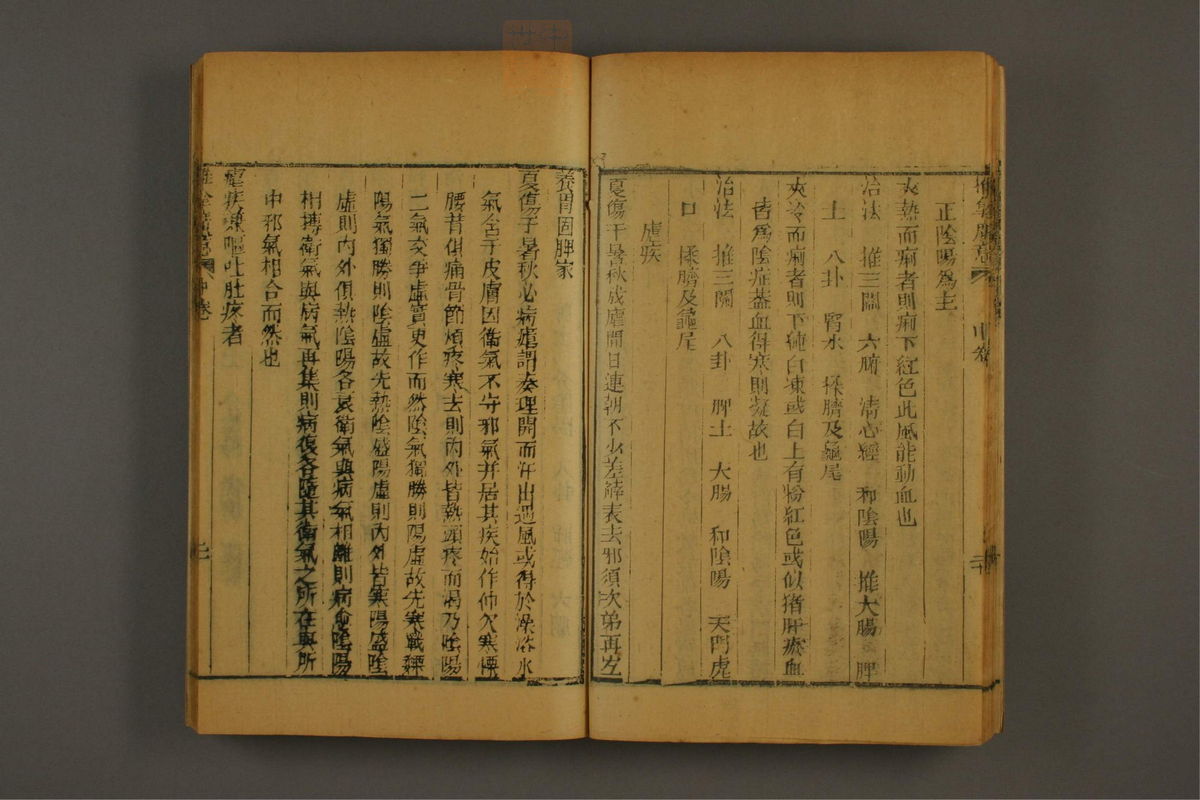 正陰陽為主
夾熱而痢者則痢下紅色此風能動血也
治法 推三關 六腑 清心經 和陰陽 推大腸 脾
土 八卦 腎水 揉臍及龜尾
夾冷而痢者則下純白凍或白上有粉紅色或似猪肝瘀血
皆為陰症蓋血得寒則凝故也
治法 推三關 八卦 脾土 大腸 和陰陽 天門虎
口 揉臍及龜尾
瘧疾
夏傷于暑秋成瘧間日連朝不少差解表去邪須次第再左
養胃固脾家
夏傷于暑秋必病瘧謂奏理開而汗出遇風或得於澡浴水
氣舍于皮膚因衛氣不守邪氣并居其疾始作伸欠寒慄
腰昔俱痛骨節煩疼寒去則內外皆熱頭疼而渴乃陰陽
二氣交爭虛實更作而然陰氣獨勝則陽虛故先寒戰慄
陽氣獨勝則陰虛故先熱陰盛陽虛則內外皆寒陽盛陰
虛則內外俱熱陰陽各衰衛氣與病氣相離則病愈陰陽
相搏衛氣與病氣再集則病復各隨其衛氣之所在與所
中邪氣相合而然也
瘧疾兼嘔吐肚疼者